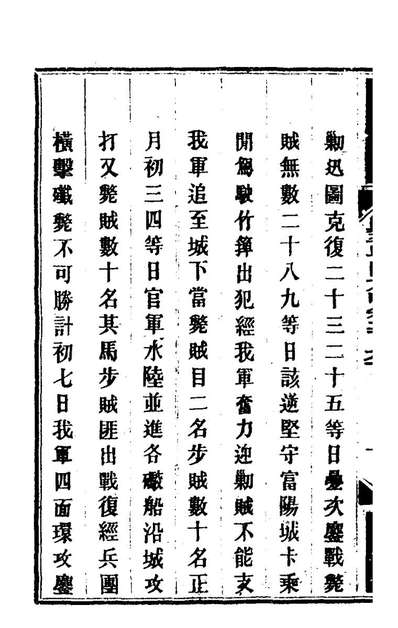 勦迅圖克復二十三二十五等日疊次鏖戰斃
賊無數二十八九等日該逆堅守富陽城卡乘
閒駕駛竹簰出犯經我軍奮力迎勦賊不能支
我軍追至城下當斃賊目二名步賊數十名正
月初三四等日官軍水陸並進各礮船沿城攻
打又斃賊數十名其馬步賊匪出戰復經兵團
橫擊殲斃不可勝計初七日我軍四面環攻鏖